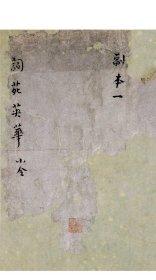 副本一
詞苑英華 小令